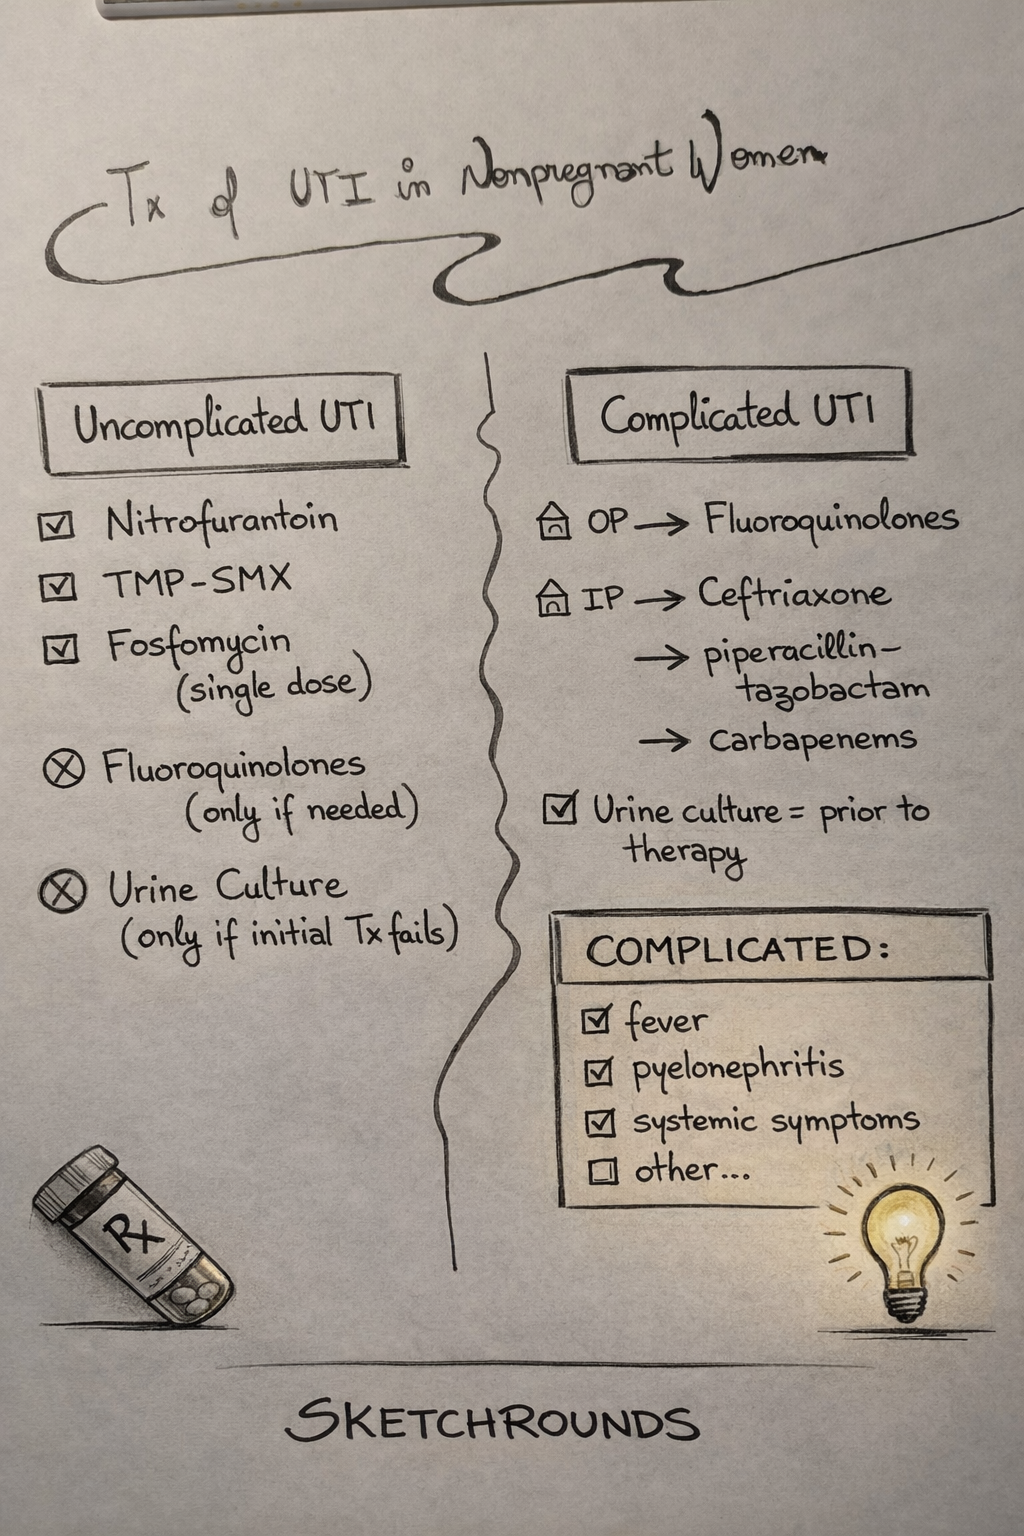 Tx of UTI in Nonpregnant Women
Uncomplicated UTI
Nitrofurantoin
TMP-SMX
Fosfomycin
(single dose)
Fluoroquinolones
(only if needed)
Urine Culture
(only if initial Tx fails)
Complicated UTI
OP → Fluoroquinolones
IP → Ceftriaxone
→ piperacillin-
tazobactam
→ carbapenems
Urine culture = prior to
therapy
COMPLICATED:
fever
pyelonephritis
systemic symptoms
other...
Rx
SKETCHROUNDS